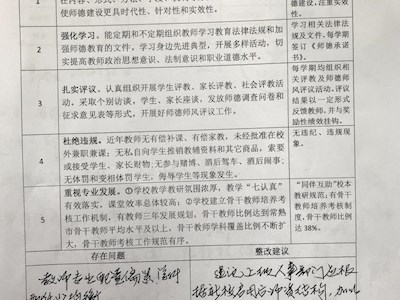 在内容、形式、方法、手段
使师德建设更具时代性、针对性和实效性。
建设，注重实效性。
2
强化学习。能定期和不定期组织教师学习教育法律法规和加
强师德教育的文件，学习身边先进典型，开展多样活动，切
实提高教师政治思想意识、法制意识和职业道德水平。
学习相关法律
法规及文件，每学期
签订《师德承诺
书》。
3
扎实评议。认真组织开展学生评教、家长评教、社会评教活
动，采取个别访谈，学生、家长座谈，发放师德调查问卷和
征求意见表等形式，开展好师德师风评议工作。
每学期均组织相
关评教及师德师
风评议活动。评议
结果以一定形式
反馈教师，并与奖
励性绩效挂钩。
4
杜绝违规。近年教师无有偿补课、有偿家教，未经批准在校
外兼职兼课；无私自向学生推销教辅资料和其它商品，索要
或接受学生、家长财物；无参与赌博、酒后驾车、酒后闹事；
无体罚和变相体罚学生、侮辱学生等现象发生。
无违纪、违规现
象。
5
重视专业发展。①学校教学教研氛围浓厚，教学“七认真”
有效落实，课堂效率总体较高；②学校建立骨干教师培养考
核工作机制，有教师三年发展规划，骨干教师比例达到常熟
市骨干教师平均水平及以上，骨干教师学科覆盖比例不断扩
大，骨干教师考核工作规范有序。
“同伴互助”校本
教研规范；有骨干
教师培养考核制
度，骨干教师比例
达38%。
存在问题
整改建议
教师专业配置
建议上级人事部门